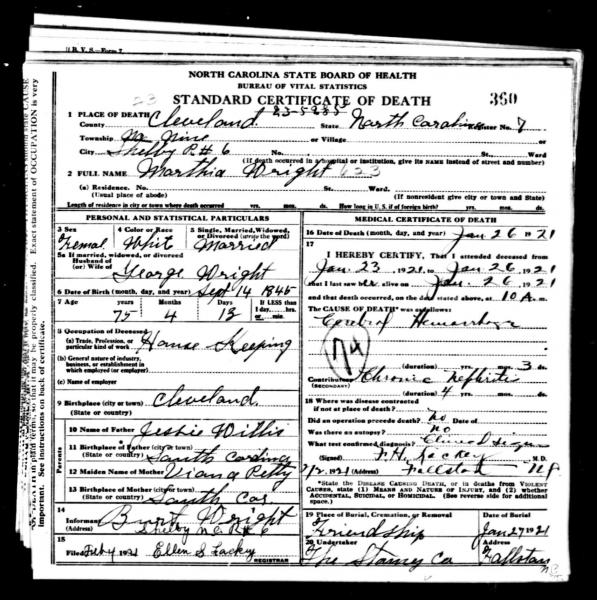 N. B. V. S.—Form 7
NORTH CAROLINA STATE BOARD OF HEALTH
BUREAU OF VITAL STATISTICS
23 STANDARD CERTIFICATE OF DEATH 360
1 PLACE OF DEATH 23-5235
County Cleveland State North Carolina Register No. 7
Township No Nine or Village
City Shelby R# 6
(If death occurred in a hospital or institution, give its NAME instead of street and number)
2 FULL NAME Marthia Wright 623
(a) Residence. No. St. Ward.
(Usual place of abode) (If nonresident give city or town and State)
Length of residence in city or town where death occurred yrs. mos. ds. How long in U. S., if of foreign birth? yrs. mos. ds.
PERSONAL AND STATISTICAL PARTICULARS
3 Sex 4 Color or Race 5 Single, Married, Widowed, or Divorced (write the word)
Femal Whit Married
5a If married, widowed, or divorced
Husband of
(or) Wife of George Wright
6 Date of Birth (month, day, and year) Sept 14 1845
7 Age Years Months Days If LESS than
75 4 12
8 Occupation of Deceased
(a) Trade, Profession, or
particular kind of work House Keeping
(b) General nature of industry,
business, or establishment in
which employed (or employer)
(c) Name of employer
9 Birthplace (city or town) Cleveland
(State or country)
Parents
10 Name of Father Jessie Willis
11 Birthplace of Father (city or town)
(State or country) South Carolina
12 Maiden Name of Mother Viana Petty
13 Birthplace of Mother (city or town)
(State or country) South Car
14
Informant Burt Wright
Shelby N.C. R# 6
15
Filed Feb 4 1921 Ellen S Lackey
REGISTRAR
MEDICAL CERTIFICATE OF DEATH
16 Date of Death (month, day, and year) Jan 26 1921
17
I HEREBY CERTIFY, That I attended deceased from
Jan. 23 1921 to Jan 26 1921
that I last saw her alive on Jan. 26 1921
and that death occurred, on the date stated above, at 10 A m.
The CAUSE OF DEATH* was as follows:
Cerebral Hemorrhage
74
(duration) yrs. mos. 3 ds.
Contributory Chronic Nefhritis
(SECONDARY)
(duration) 4 yrs. mos. ds.
18 Where was disease contracted
if not at place of death?
Did an operation precede death? No
Was there an autopsy? No
What test confirmed diagnosis? Clinical Signs
(Signed) F.H. Lackey M. D.
2/2 1921 (Address) Fallston N.C.
*State the DISEASE CAUSING DEATH, or in deaths from VIOLENT
CAUSES, state (1) MEANS AND NATURE OF INJURY, and (2) whether
ACCIDENTAL, SUICIDAL, or HOMICIDAL. (See reverse side for additional
space.)
19 Place of Burial, Cremation, or Removal Date of Burial
Friendship Jan 27 1921
20 Undertaker Address
The Stamey Co Fallston
N.C.